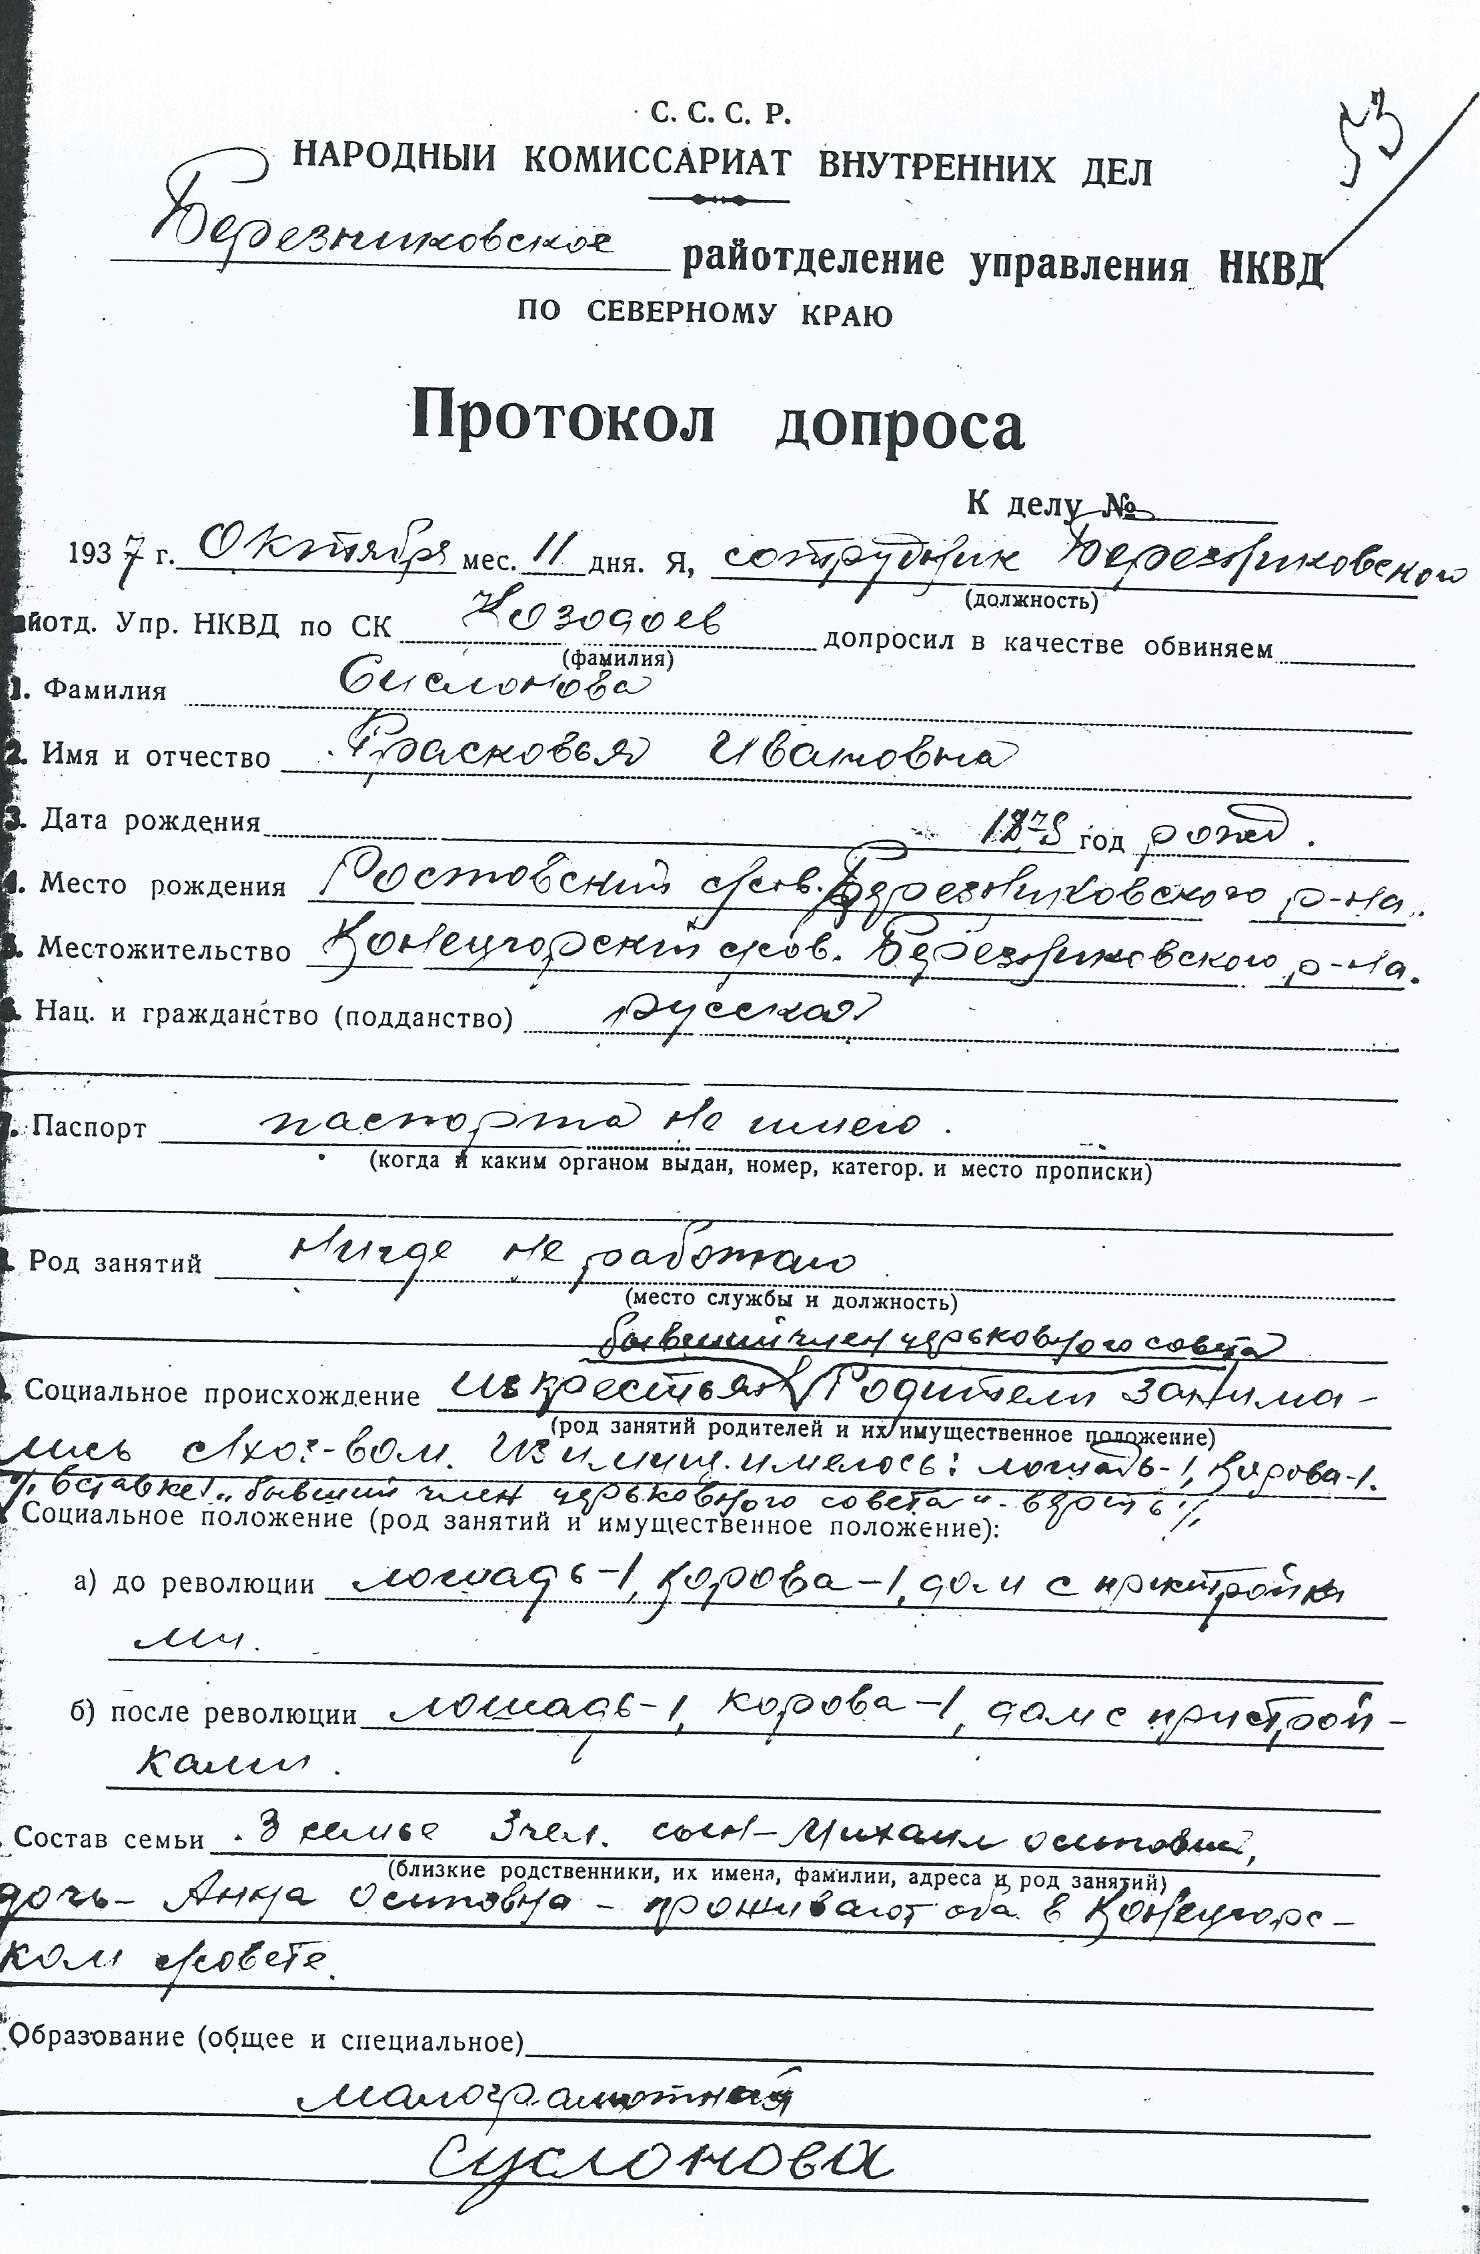 53
С. С. С. Р.
НАРОДНЫЙ КОМИССАРИАТ ВНУТРЕННИХ ДЕЛ
Березниковское райотделение управления НКВД
ПО СЕВЕРНОМУ КРАЮ
Протокол допроса
К делу №
1937 г. Октября мес. 11 дня. Я, сотрудник Березниковского
(должность)
йотд. Упр. НКВД по СК Козодоев допросил в качестве обвиняем
(фамилия)
1. Фамилия Сислонова
2. Имя и отчество Прасковья Ивановна
3. Дата рождения год рожд.
4. Место рождения Ростовский с/сов. Березниковского р-на.
5. Местожительство Конецгорский с/сов. Березниковского р-на.
Нац. и гражданство (подданство) русская
7. Паспорт паспорта не имею.
(когда и каким органом выдан, номер, категор. и место прописки)
Род занятий нигде не работаю
(место службы и должность)
бывший член церьковного совета
Социальное происхождение из крестьян Родители занима-
(род занятий родителей и их имущественное положение)
лись с/хоз-вом. Из имущ. имелось: лошадь-1, корова-1.
вставке „бывший член церьковного совета"-
Социальное положение (род занятий и имущественное положение):
а) до революции лошадь-1, корова-1, дом с пристройка
ми.
б) после революции лошадь-1, корова-1, дом с пристрой-
ками.
Состав семьи В семье 3 чел. сын-Михаил Осипович,
(близкие родственники, их имена, фамилии, адреса и род занятий)
дочь- Анна Осиповна - проживают оба в Конецгорс-
ком с/совете.
Образование (общее и специальное)
малограмотная
Суслонова